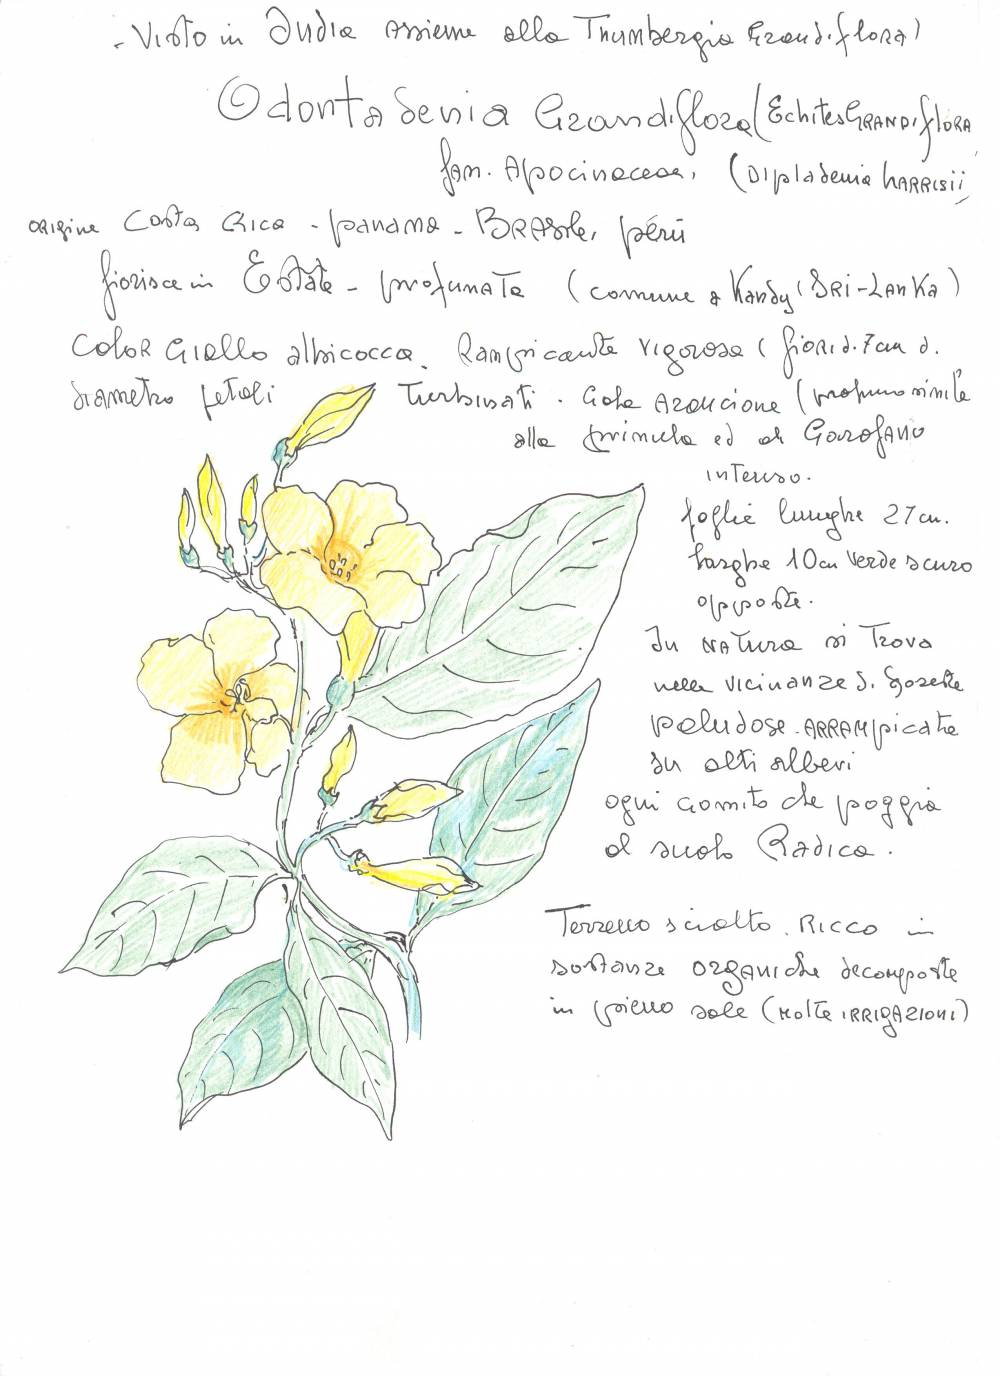 - Visto in India assieme alla Thumbergia Grandiflora)
Odontadenia Grandiflora (Echites GRANDiflORA
fam. Apocinaceae, (DIpladenia hARRISii)
ORIgine Costa Rica - panama - BRAsile, perù
fiorisce in Estate - profumata (comune a Kandy (SRI-LANKA)
Color Giallo albicocca. Rampicante vigorosa (fiori di 7 cm d.
diametro petali Turbinati. Gola Arancione (profumo simile
alla primula ed al Garofano
intenso.
foglie lunghe 27 cm.
larghe 10 cm verde scuro
opposte.
In NATura si Trova
nelle vicinanze di foreste
paludose. ARRAMpicata
su alti alberi
ogni gomito che poggia
al suolo Radica.
Terreno sciolto. RICCO in
sostanze ORgANIche decomposte
in pieno sole (Molte IRRIgAZIONI)